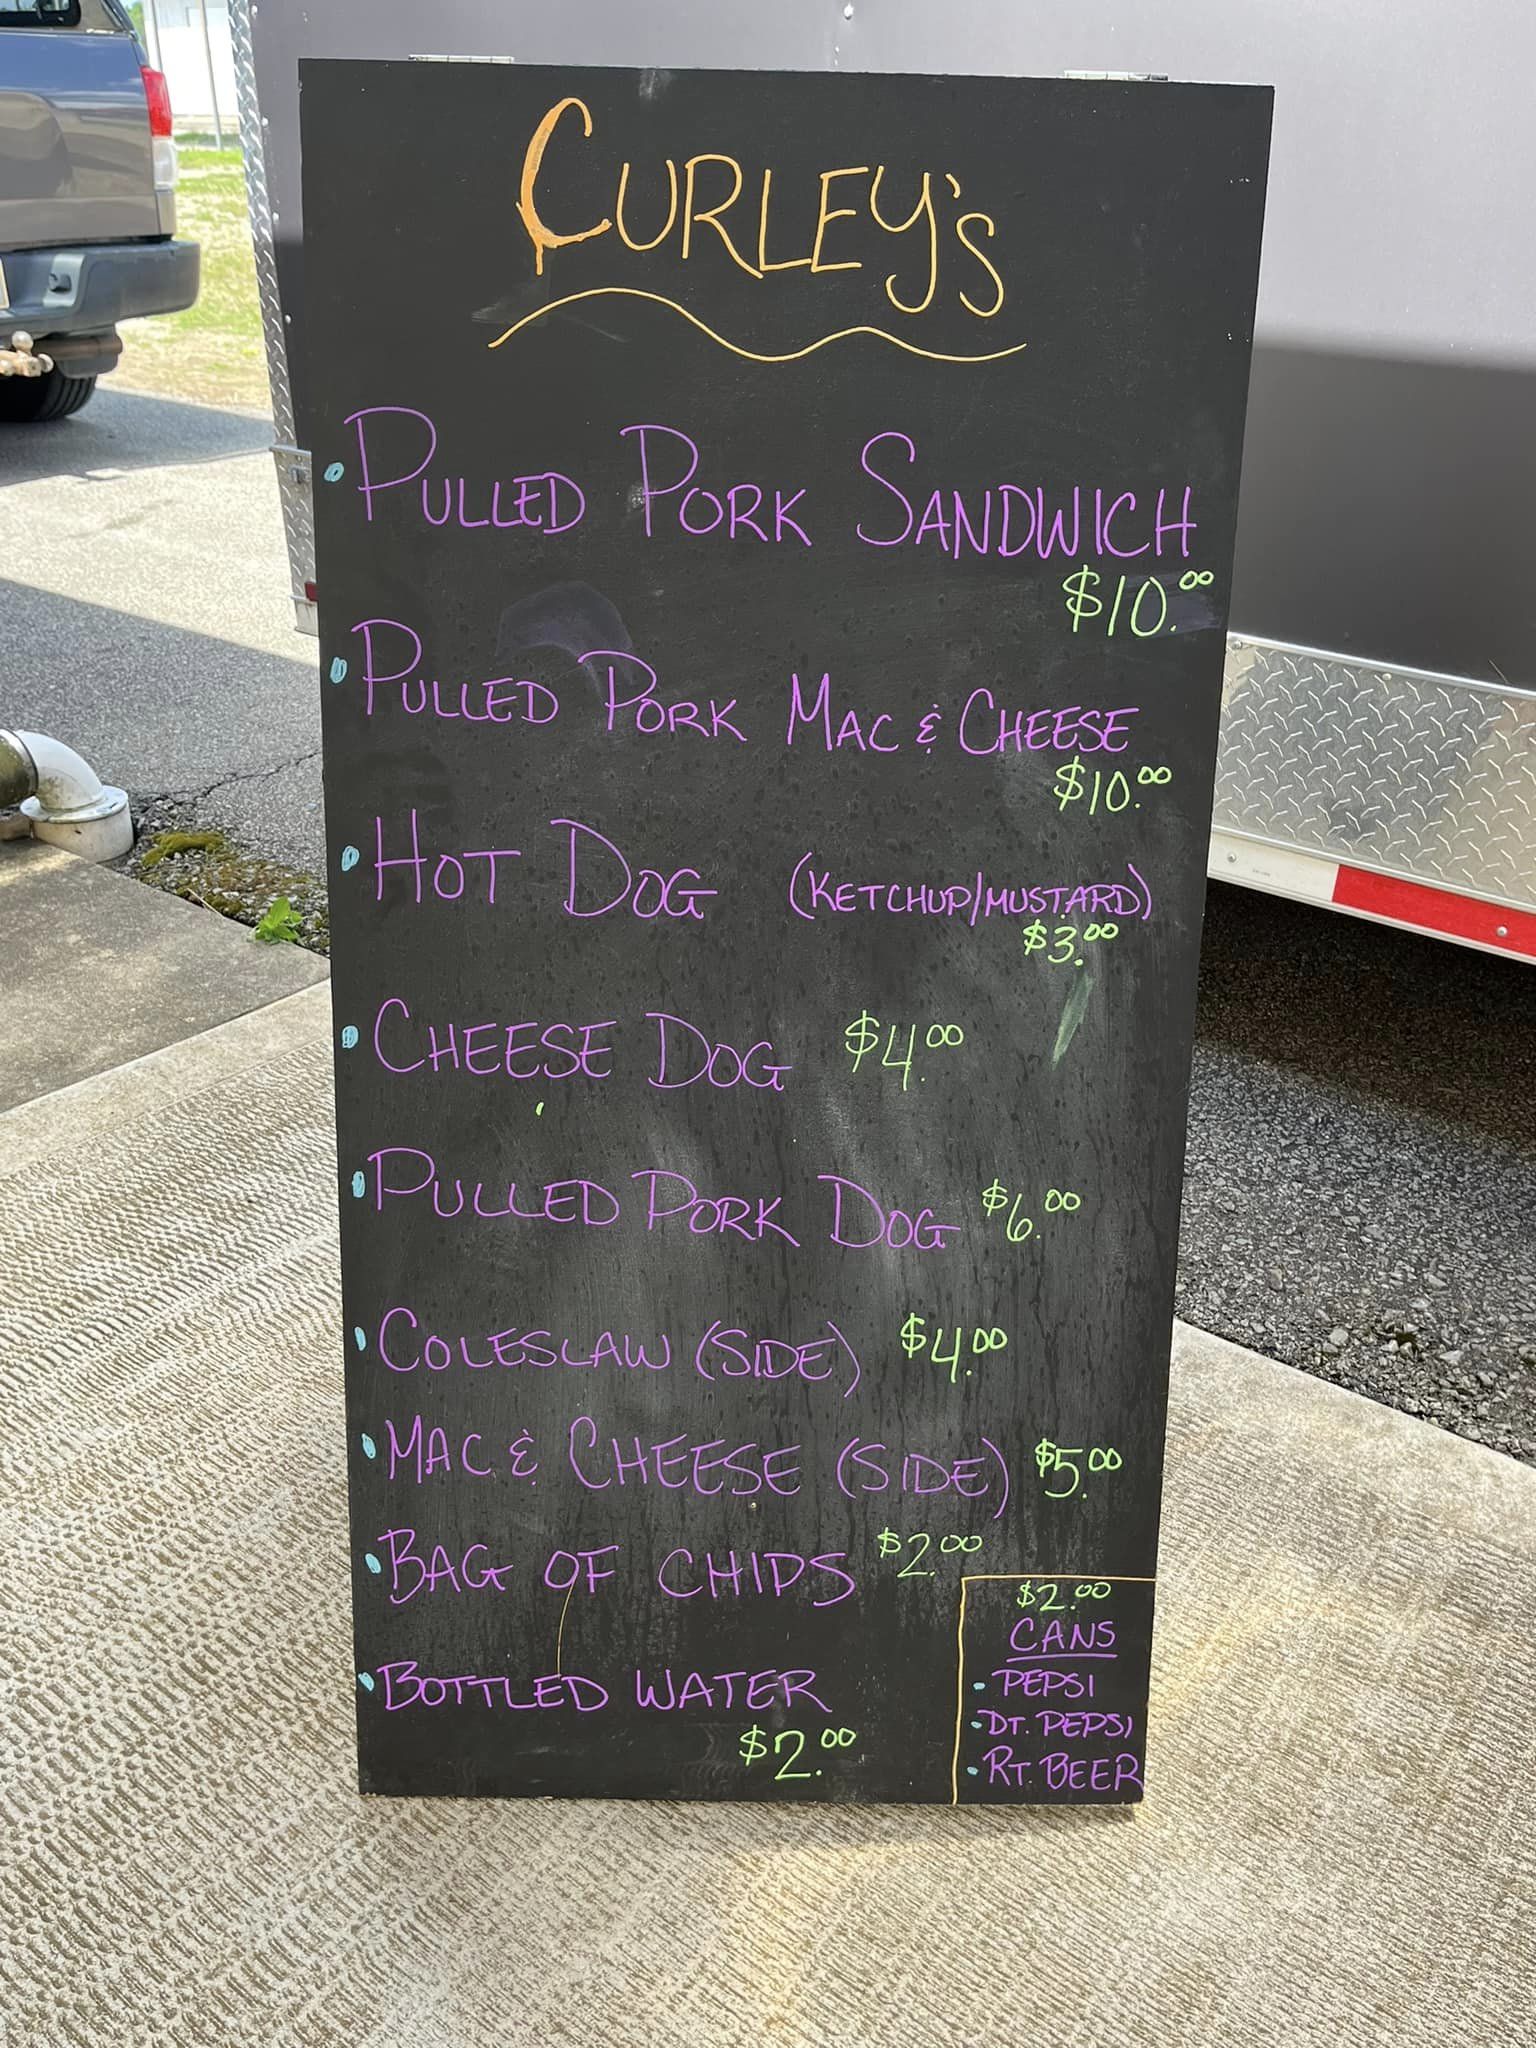 CURLEY'S
• PULLED PORK SANDWICH
$10.00
• PULLED PORK MAC & CHEESE
$10.00
• HOT DOG (KETCHUP/MUSTARD)
$3.00
• CHEESE DOG $4.00
• PULLED PORK DOG $6.00
• COLESLAW (SIDE) $4.00
• MAC & CHEESE (SIDE) $5.00
• BAG OF CHIPS $2.00
• BOTTLED WATER
$2.00
$2.00
CANS
• PEPSI
• DT. PEPSI
• RT. BEER